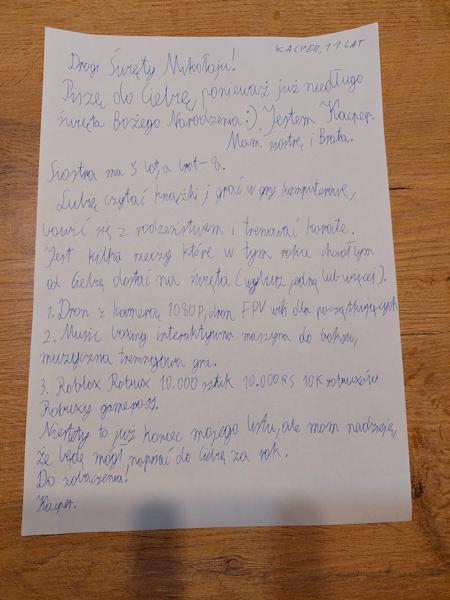 KACPER, 11 LAT
Drogi Święty Mikołaju!
Piszę do Ciebie, ponieważ już niedługo
święta Bożego Narodzenia:). Jestem Kacper.
Mam siostrę i Brata.
Siostra ma 5 lat, a brat-8.
Lubię czytać książki, grać w gry komputerowe,
bawić się z rodzeństwem i trenować karate.
Jest kilka rzeczy które w tym roku chciałbym
od Ciebie dostać na święta (wybierz jedną lub więcej).
1. Dron z kamerą 1080P, dron FPV wifi dla początkujących
2. Music boxing interaktywna maszyna do boksu,
muzyczna treningowa gra.
3. Roblox Robux 10.000 sztuk 10.000RS 10K robuxów
Robuxy gamepass.
Niestety to już koniec mojego listu, ale mam nadzieję,
że będę mógł napisać do Ciebie za rok.
Do zobaczenia!
Kacper.